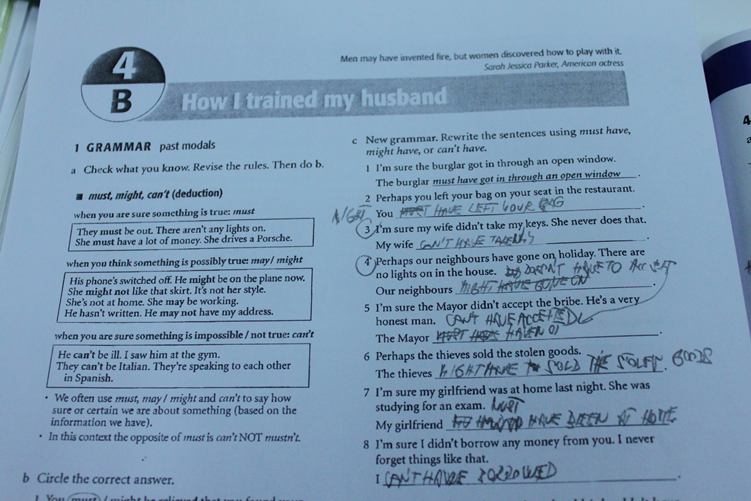 Men may have invented fire, but women discovered how to play with it.
Sarah Jessica Parker, American actress
4
B
How I trained my husband
1 GRAMMAR past modals
a Check what you know. Revise the rules. Then do b.
■ must, might, can't (deduction)
when you are sure something is true: must
They must be out. There aren't any lights on.
She must have a lot of money. She drives a Porsche.
when you think something is possibly true: may / might
His phone's switched off. He might be on the plane now.
She might not like that skirt. It's not her style.
She's not at home. She may be working.
He hasn't written. He may not have my address.
when you are sure something is impossible / not true: can't
He can't be ill. I saw him at the gym.
They can't be Italian. They're speaking to each other
in Spanish.
• We often use must, may / might and can't to say how
sure or certain we are about something (based on the
information we have).
• In this context the opposite of must is can't NOT mustn't.
b Circle the correct answer.
c New grammar. Rewrite the sentences using must have,
might have, or can't have.
1 I'm sure the burglar got in through an open window.
The burglar must have got in through an open window.
2 Perhaps you left your bag on your seat in the restaurant.
You MIGHT HAVE LEFT YOUR BAG
3 I'm sure my wife didn't take my keys. She never does that.
My wife CAN'T HAVE
4 Perhaps our neighbours have gone on holiday. There are
no lights on in the house.
Our neighbours MIGHT HAVE GONE ON
5 I'm sure the Mayor didn't accept the bribe. He's a very
honest man. CAN'T HAVE ACCEPTED
The Mayor
6 Perhaps the thieves sold the stolen goods.
The thieves MIGHT HAVE SOLD THE STOLEN GOODS
7 I'm sure my girlfriend was at home last night. She was
studying for an exam. MUST
My girlfriend HAVE BEEN AT HOME
8 I'm sure I didn't borrow any money from you. I never
forget things like that.
I CAN'T HAVE BORROWED